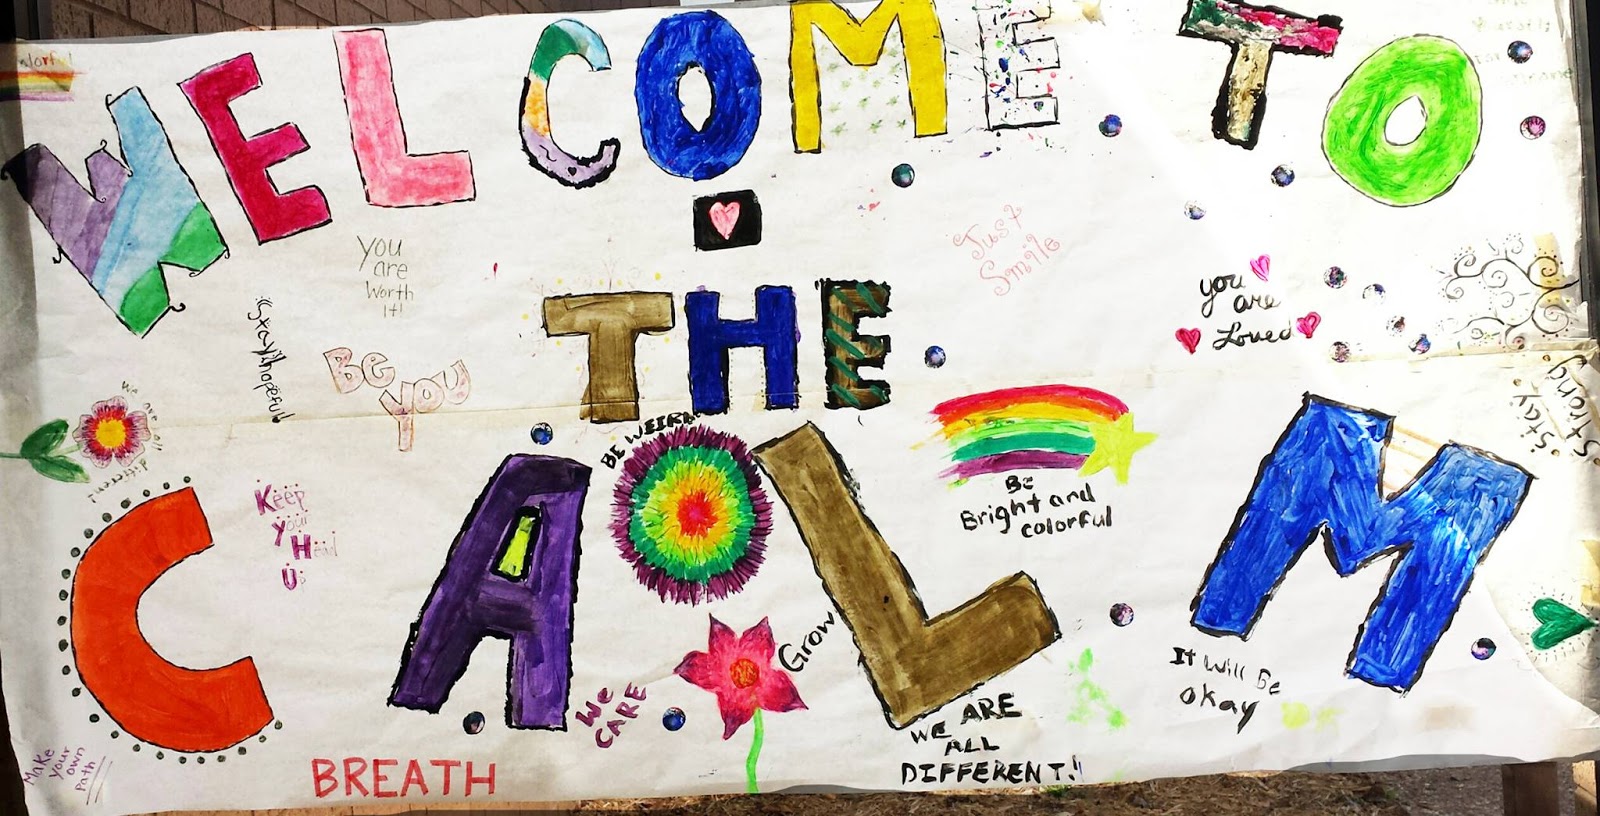 WELCOME TO
THE
CALM
You
are
worth
it!
Just
Smile
you
are
Loved
Stay hopeful
Be
you
Stay
Strong
we are all
different
Keep
your
Head
Up
BE WEIRD
Be
Bright and
colorful
Grow
We
CARE
It will Be
okay
WE ARE
ALL
DIFFERENT!
Make
your
own
Path
BREATH